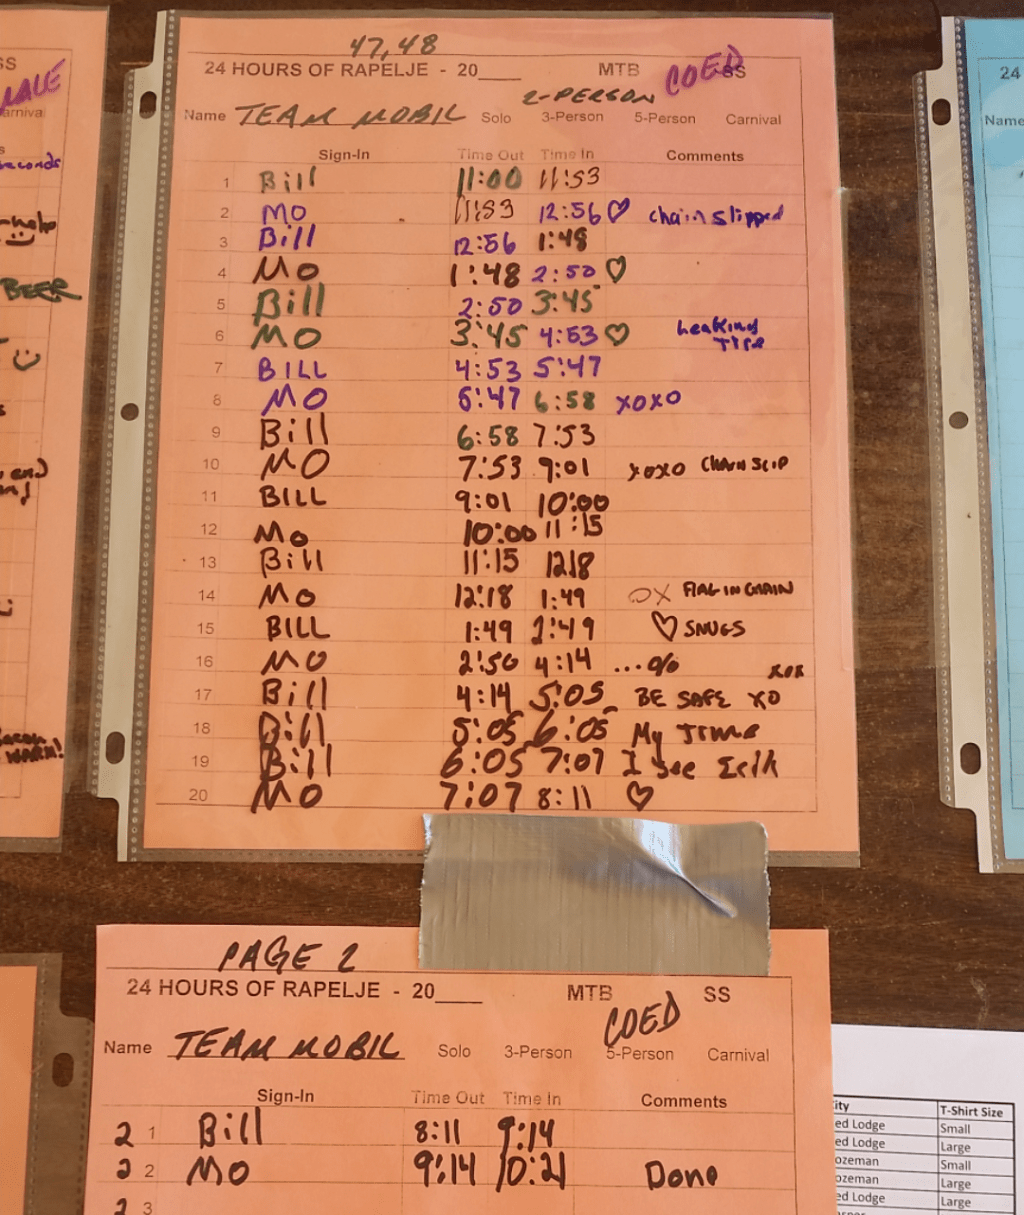 47, 48
24 HOURS OF RAPELJE - 20____ MTB COED SS
Name TEAM MOBIL Solo 2-PERSON 3-Person 5-Person Carnival
Sign-In Time Out Time In Comments
1 Bill 11:00 11:53
2 Mo 11:53 12:56 ♡ chain slipped
3 Bill 12:56 1:48
4 Mo 1:48 2:50 ♡
5 Bill 2:50 3:45
6 Mo 3:45 4:53 ♡ Leaking Tire
7 BILL 4:53 5:47
8 MO 5:47 6:58 XOXO
9 Bill 6:58 7:53
10 MO 7:53 9:01 XOXO CHAIN SLIP
11 BILL 9:01 10:00
12 Mo 10:00 11:15
13 Bill 11:15 1218
14 Mo 12:18 1:49 OX FLAG IN CHAIN
15 BILL 1:49 2:49 ♡ SNUGS
16 MO 2:50 4:14 ... XOX
17 Bill 4:14 5:05 BE SAFE XO
18 Bill 5:05 6:05 My Time
19 Bill 6:05 7:07 I see Erik
20 MO 7:07 8:11 ♡
PAGE 2
24 HOURS OF RAPELJE - 20____ MTB COED SS
Name TEAM MOBIL Solo 3-Person 5-Person Carnival
Sign-In Time Out Time In Comments
2 1 Bill 8:11 9:14
2 2 MO 9:14 10:21 Done
2 3
SS
MALE
BEER
WARM!
24
Name
T-Shirt Size
ed Lodge Small
ed Lodge Large
ozeman Small
ozeman Large
ed Lodge Large